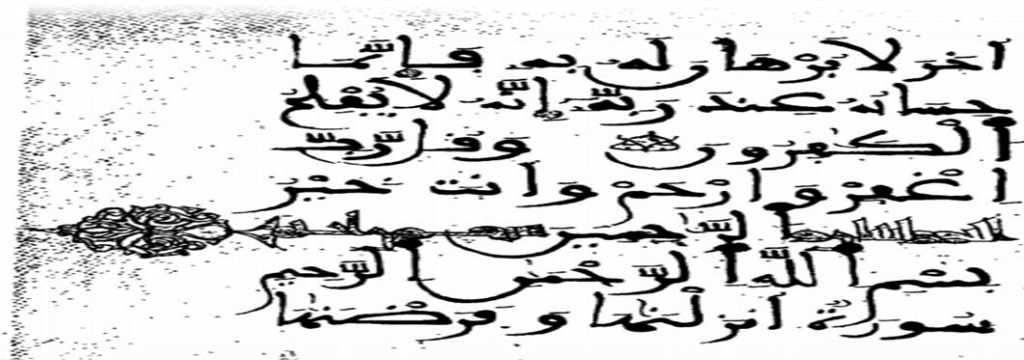 اخر لا برهان له به فإنما
حسابه عند ربه إنه لا يفلح
الكفرون وقل رب
اغفر وارحم وانت خير
الرحمين
بسم الله الرحمن الرحيم
سورة انزلنها وفرضنها